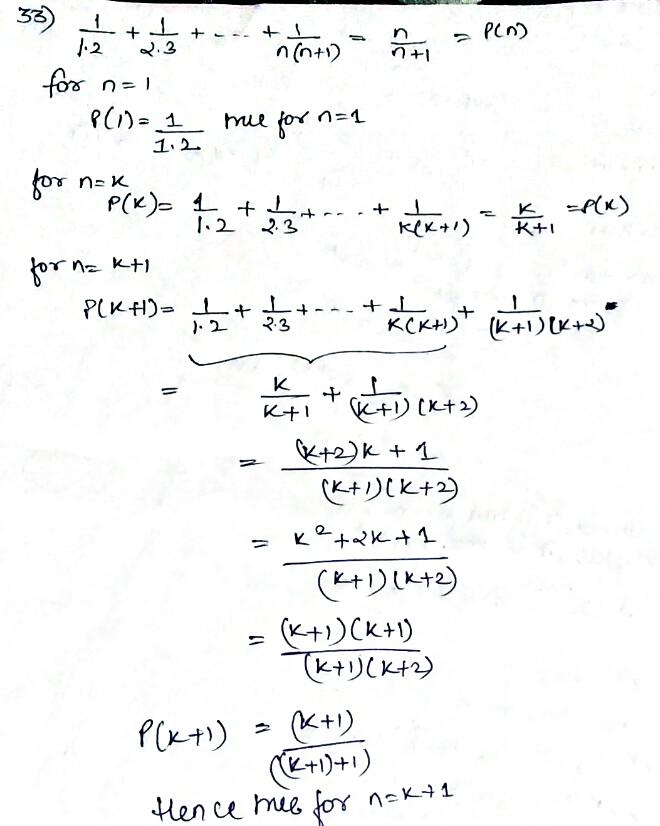 33) 1/1.2 + 1/2.3 + - - - + 1/n(n+1) = n/n+1 = P(n)
for n=1
P(1) = 1/1.2 true for n=1
for n=K
P(K) = 1/1.2 + 1/2.3 + - - - + 1/K(K+1) = K/K+1 = P(K)
for n= K+1
P(K+1) = 1/1.2 + 1/2.3 + - - - + 1/K(K+1) + 1/(K+1)(K+2) =
= K/K+1 + 1/(K+1)(K+2)
= (K+2)K + 1/(K+1)(K+2)
= K²+2K+1/(K+1)(K+2)
= (K+1)(K+1)/(K+1)(K+2)
P(K+1) = (K+1)/((K+1)+1)
Hence true for n=K+1